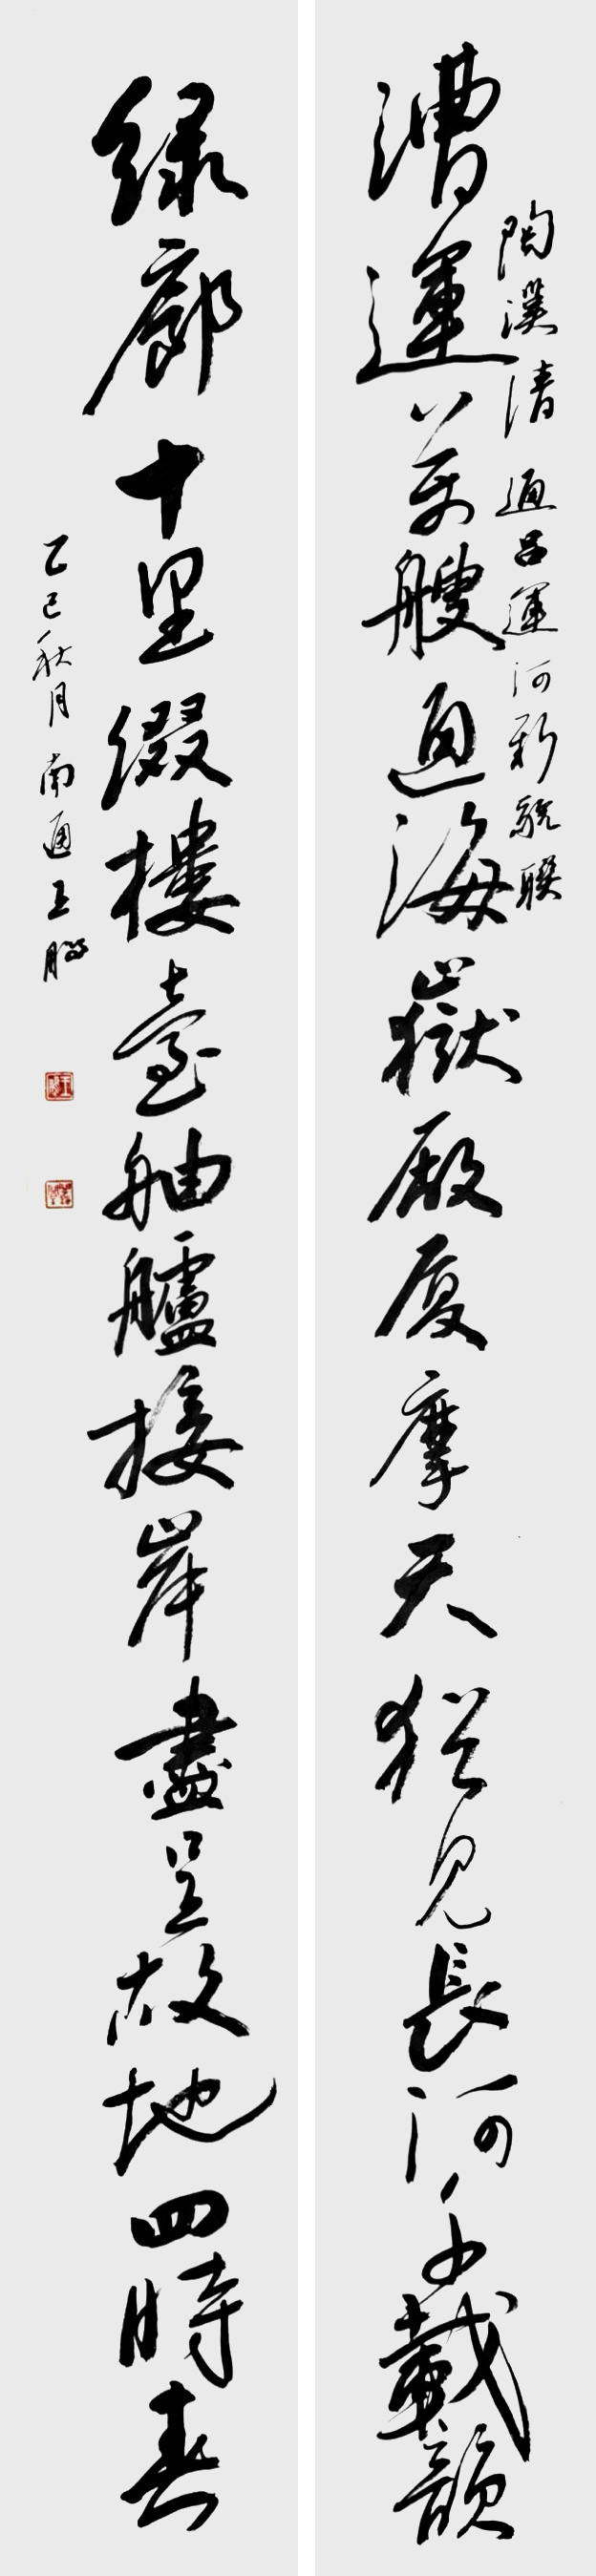 陶漢清 通吕運河新貌聯
漕運萬艘通海嶽殿厦摩天猶見長河千載韻
綠廊十里綴樓臺舳艫接岸盡呈故地四時春
乙巳秋月 南通王